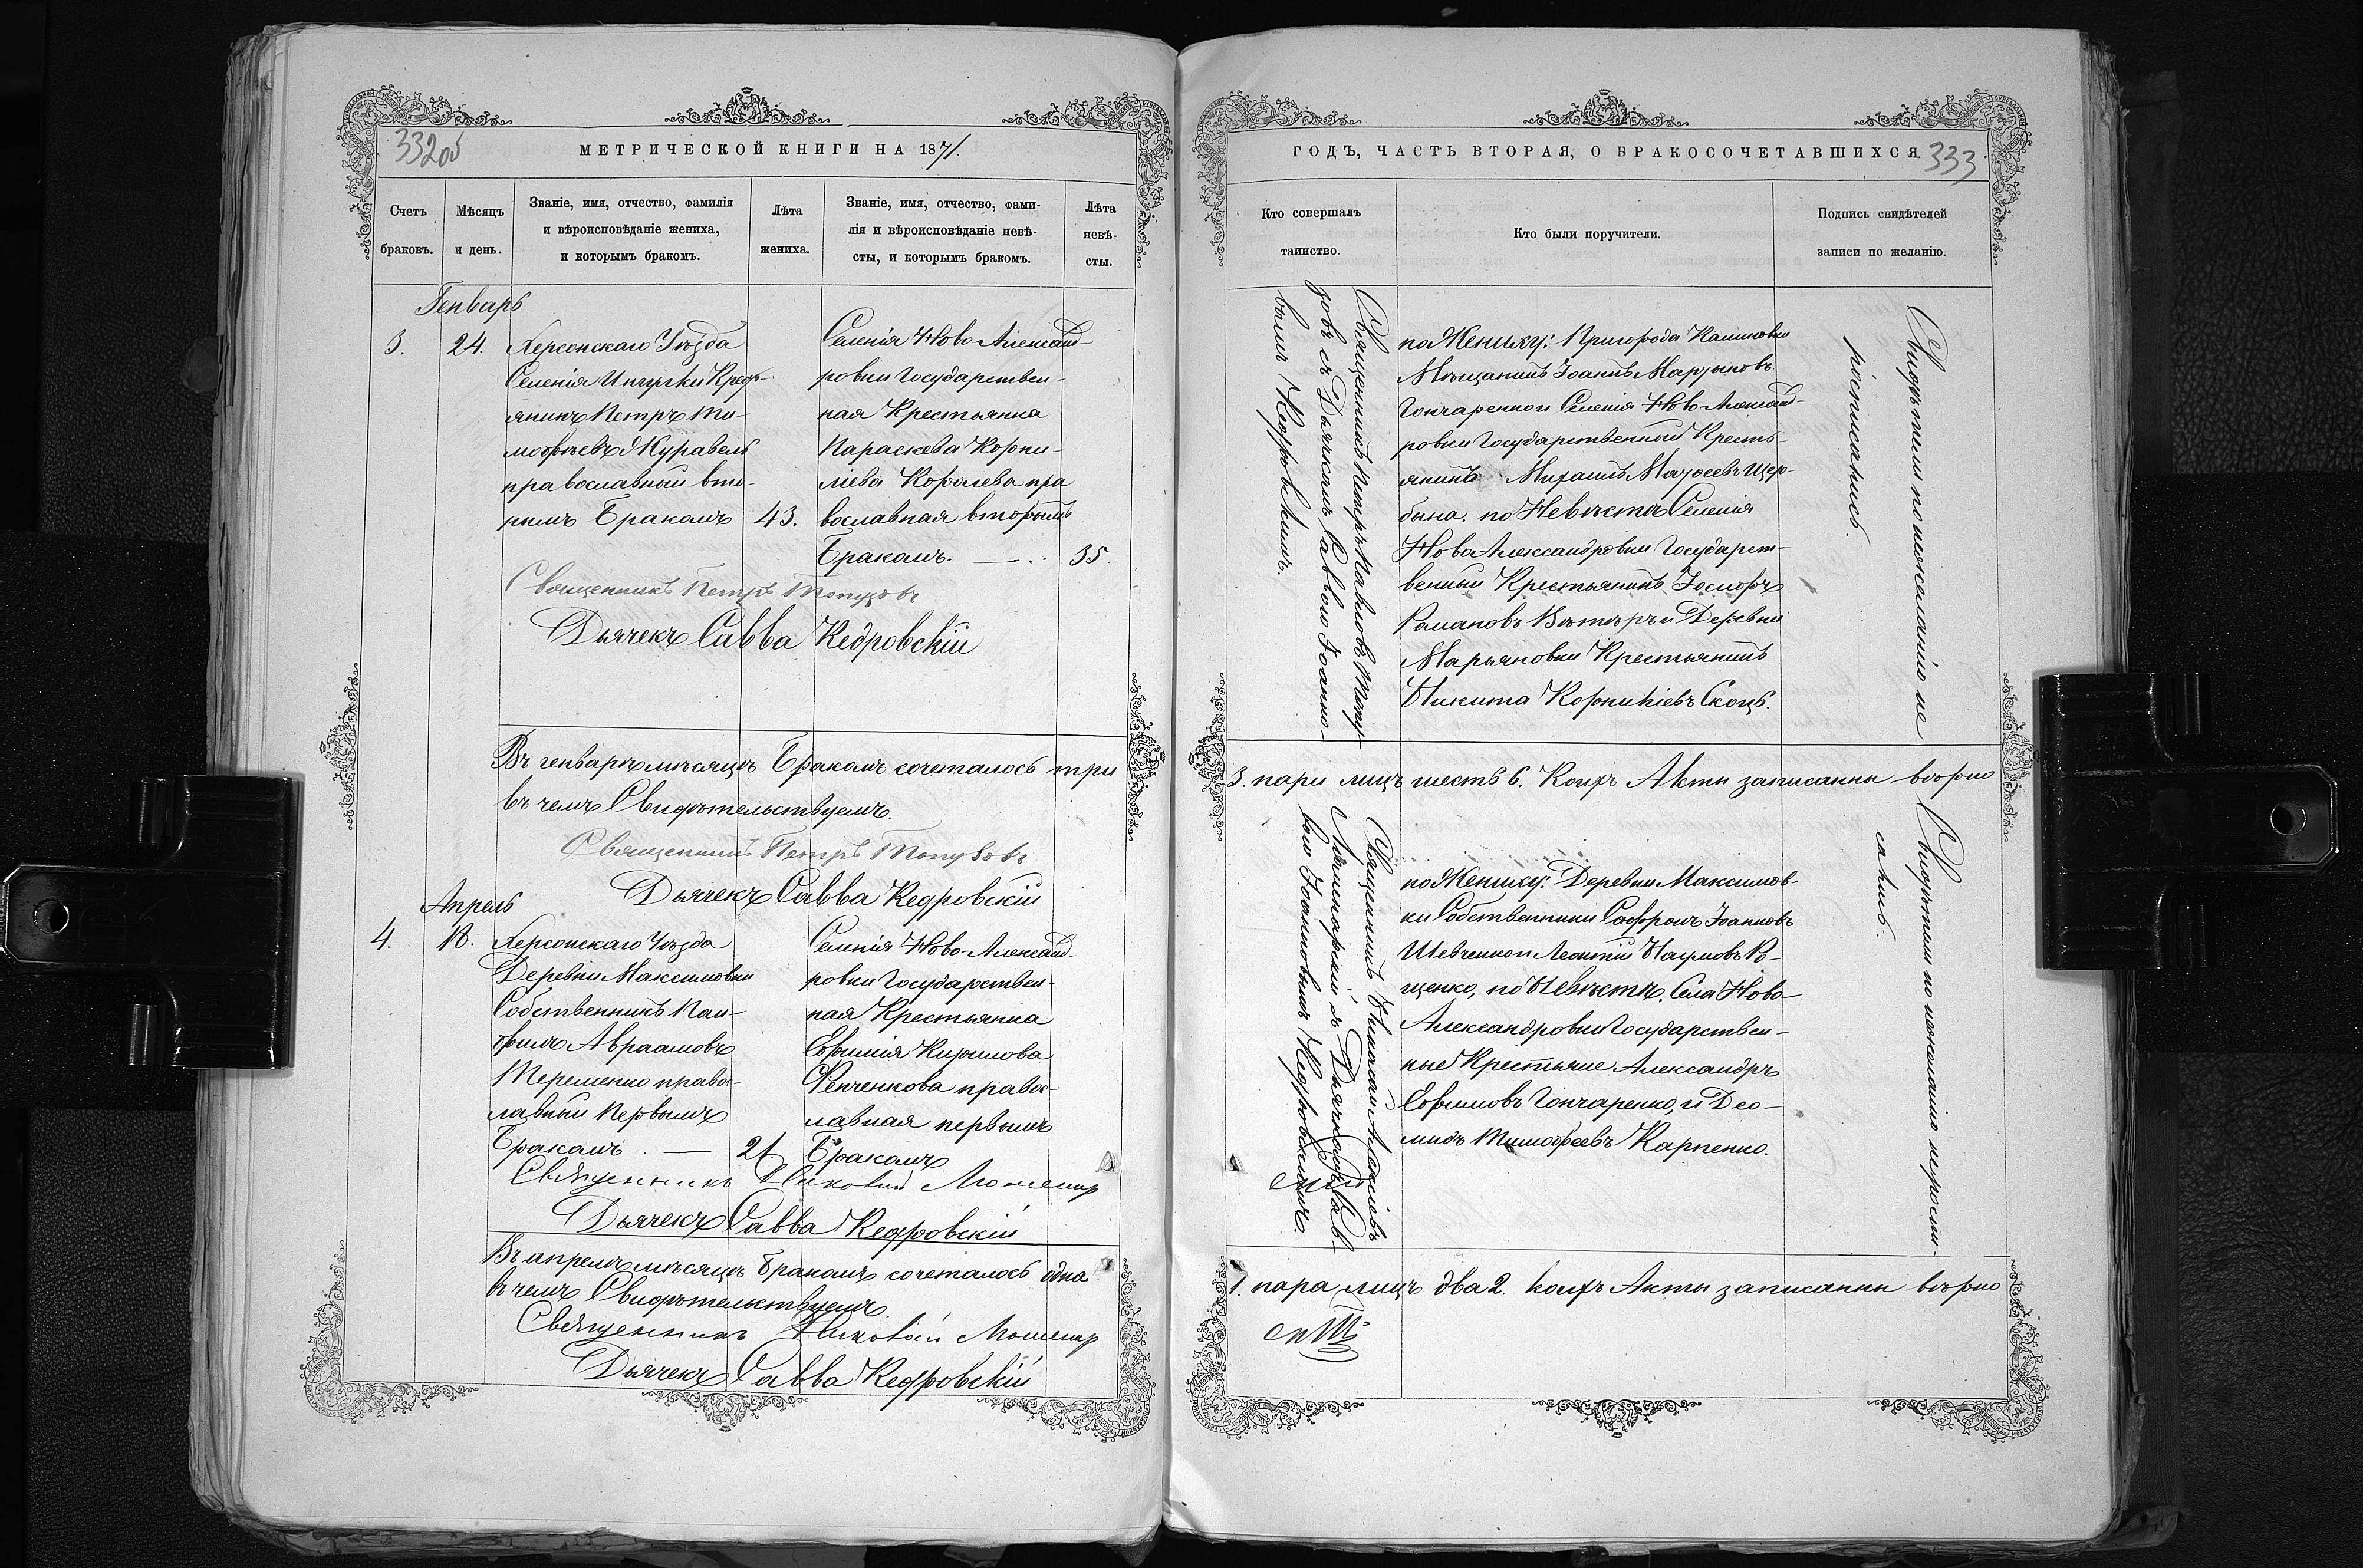 332об
МЕТРИЧЕСКОЙ КНИГИ НА 1871.
Счетъ браковъ.
Мѣсяцъ и день.
Званіе, имя, отчество, фамилія
и вѣроисповѣданіе жениха,
и которымъ бракомъ.
Лѣта жениха.
Званіе, имя, отчество, фами-
лія и вѣроисповѣданіе невѣ-
сты, и которымъ бракомъ.
Лѣта
невѣ-
сты.
Генварь
3.
24.
Херсонскаго Уѣзда
Селенія Ингулки Крест-
янинъ Петръ Ти-
мофѣевъ Журавель
православный вто-
рымъ Бракомъ
43.
Селенія Ново Александ-
ровки Государствен-
ная Крестьянка
Параскева Корни-
лiева Королева пра
вославная вторымъ
Бракомъ. — .
35.
Священникъ Петръ Топузовъ
Дьячекъ Савва Кедровскій
Въ генварѣ мѣсяцѣ Бракомъ сочеталось три
въ чемъ Свидѣтельствуемъ.
Священникъ Петръ Топузовъ
Дьячекъ Савва Кедровскій
Апрель
4.
18.
Херсонскаго Уѣзда
Деревни Максимовки
Собственникъ Пан-
филъ Авраамовъ
Теременко правос-
лавный Первымъ
Бракомъ . —
21
Селенія Ново-Александ-
ровки Государствен-
ная Крестьянка
Евфимія Кирилова
Фенченкова правос-
лавная первымъ
Бракомъ
Священникъ Николай
Дьячекъ Савва Кедровскій
Въ апрелѣ мѣсяцѣ Бракомъ сочеталось одна
въ чемъ Свидѣтельствуемъ.
Священникъ Николай
Дьячекъ Савва Кедровскій
ГОДЪ, ЧАСТЬ ВТОРАЯ, О БРАКОСОЧЕТАВШИХСЯ
333
Кто совершалъ
таинство.
Кто были поручители.
Подпись свидѣтелей
записи по желанію.
Священникъ Петръ Павловъ Топу-
зовъ съ Дьячкомъ Саввою Іоанно-
вымъ Кедровскимъ.
по Жениху: Пригорода Калиновки
Мѣщанинъ Іоаннъ Мартыновъ
Гончаренко и Селенія Ново Александ-
ровки Государственный Кресть-
янинъ Михаилъ Моусеевъ Щер-
бина. по Невѣстѣ Селенія
Нова Александровки Государст-
венный Крестьянинъ Іосифъ
Романовъ Вѣтеръ и Деревни
Марьяновки Крестьянинъ
Никита Корниліевъ Скопъ.
Свидѣтели по нежеланію не
росписались.
3. пары лицъ шесть 6. Коихъ Акты записанны вѣрно
Священникъ Николай
съ Дьячкомъ Сав-
вою Іоанновымъ Кедровскимъ.
по Жениху: Деревни Максимов-
ки Собственники Софронъ Іоанновъ
Шевченко и Леонтій Наумовъ Ро-
щенко, по Невѣстѣ. Села Ново-
Александровки Государствен-
ные Крестьяне Александръ
Евфимовъ Гончаренко, и Део-
мидъ Тимофеевъ Карпенко.
Свидѣтели по нежеланію не росписа-
лись.
1. пара лицъ два 2. коихъ Акты записанны вѣрно